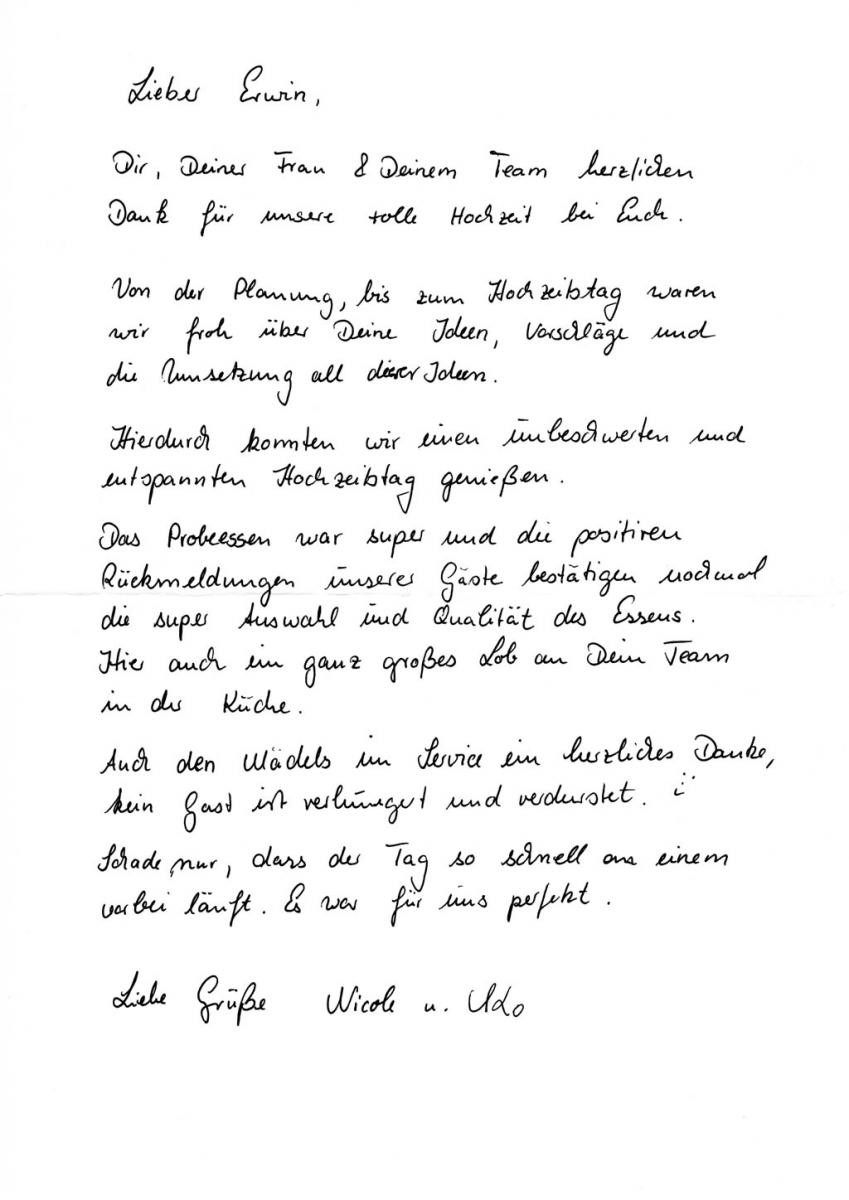 Lieber Erwin,
Dir, Deiner Frau & Deinem Team herzlichen
Dank für unsere tolle Hochzeit bei Euch.
Von der Planung, bis zum Hochzeitstag waren
wir froh über Deine Ideen, Vorschläge und
die Umsetzung all dieser Ideen.
Hierdurch konnten wir einen unbeschwerten und
entspannten Hochzeitstag genießen.
Das Probeessen war super und die positiven
Rückmeldungen unserer Gäste bestätigen nochmal
die super Auswahl und Qualität des Essens.
Hier auch ein ganz großes Lob an Dein Team
in der Küche.
Auch den Mädels im Service ein herzliches Danke,
kein Gast ist verhungert und verdurstet. :)
Schade nur, dass der Tag so schnell an einem
vorbei läuft. Es war für uns perfekt.
Liebe Grüße Nicole u. Udo